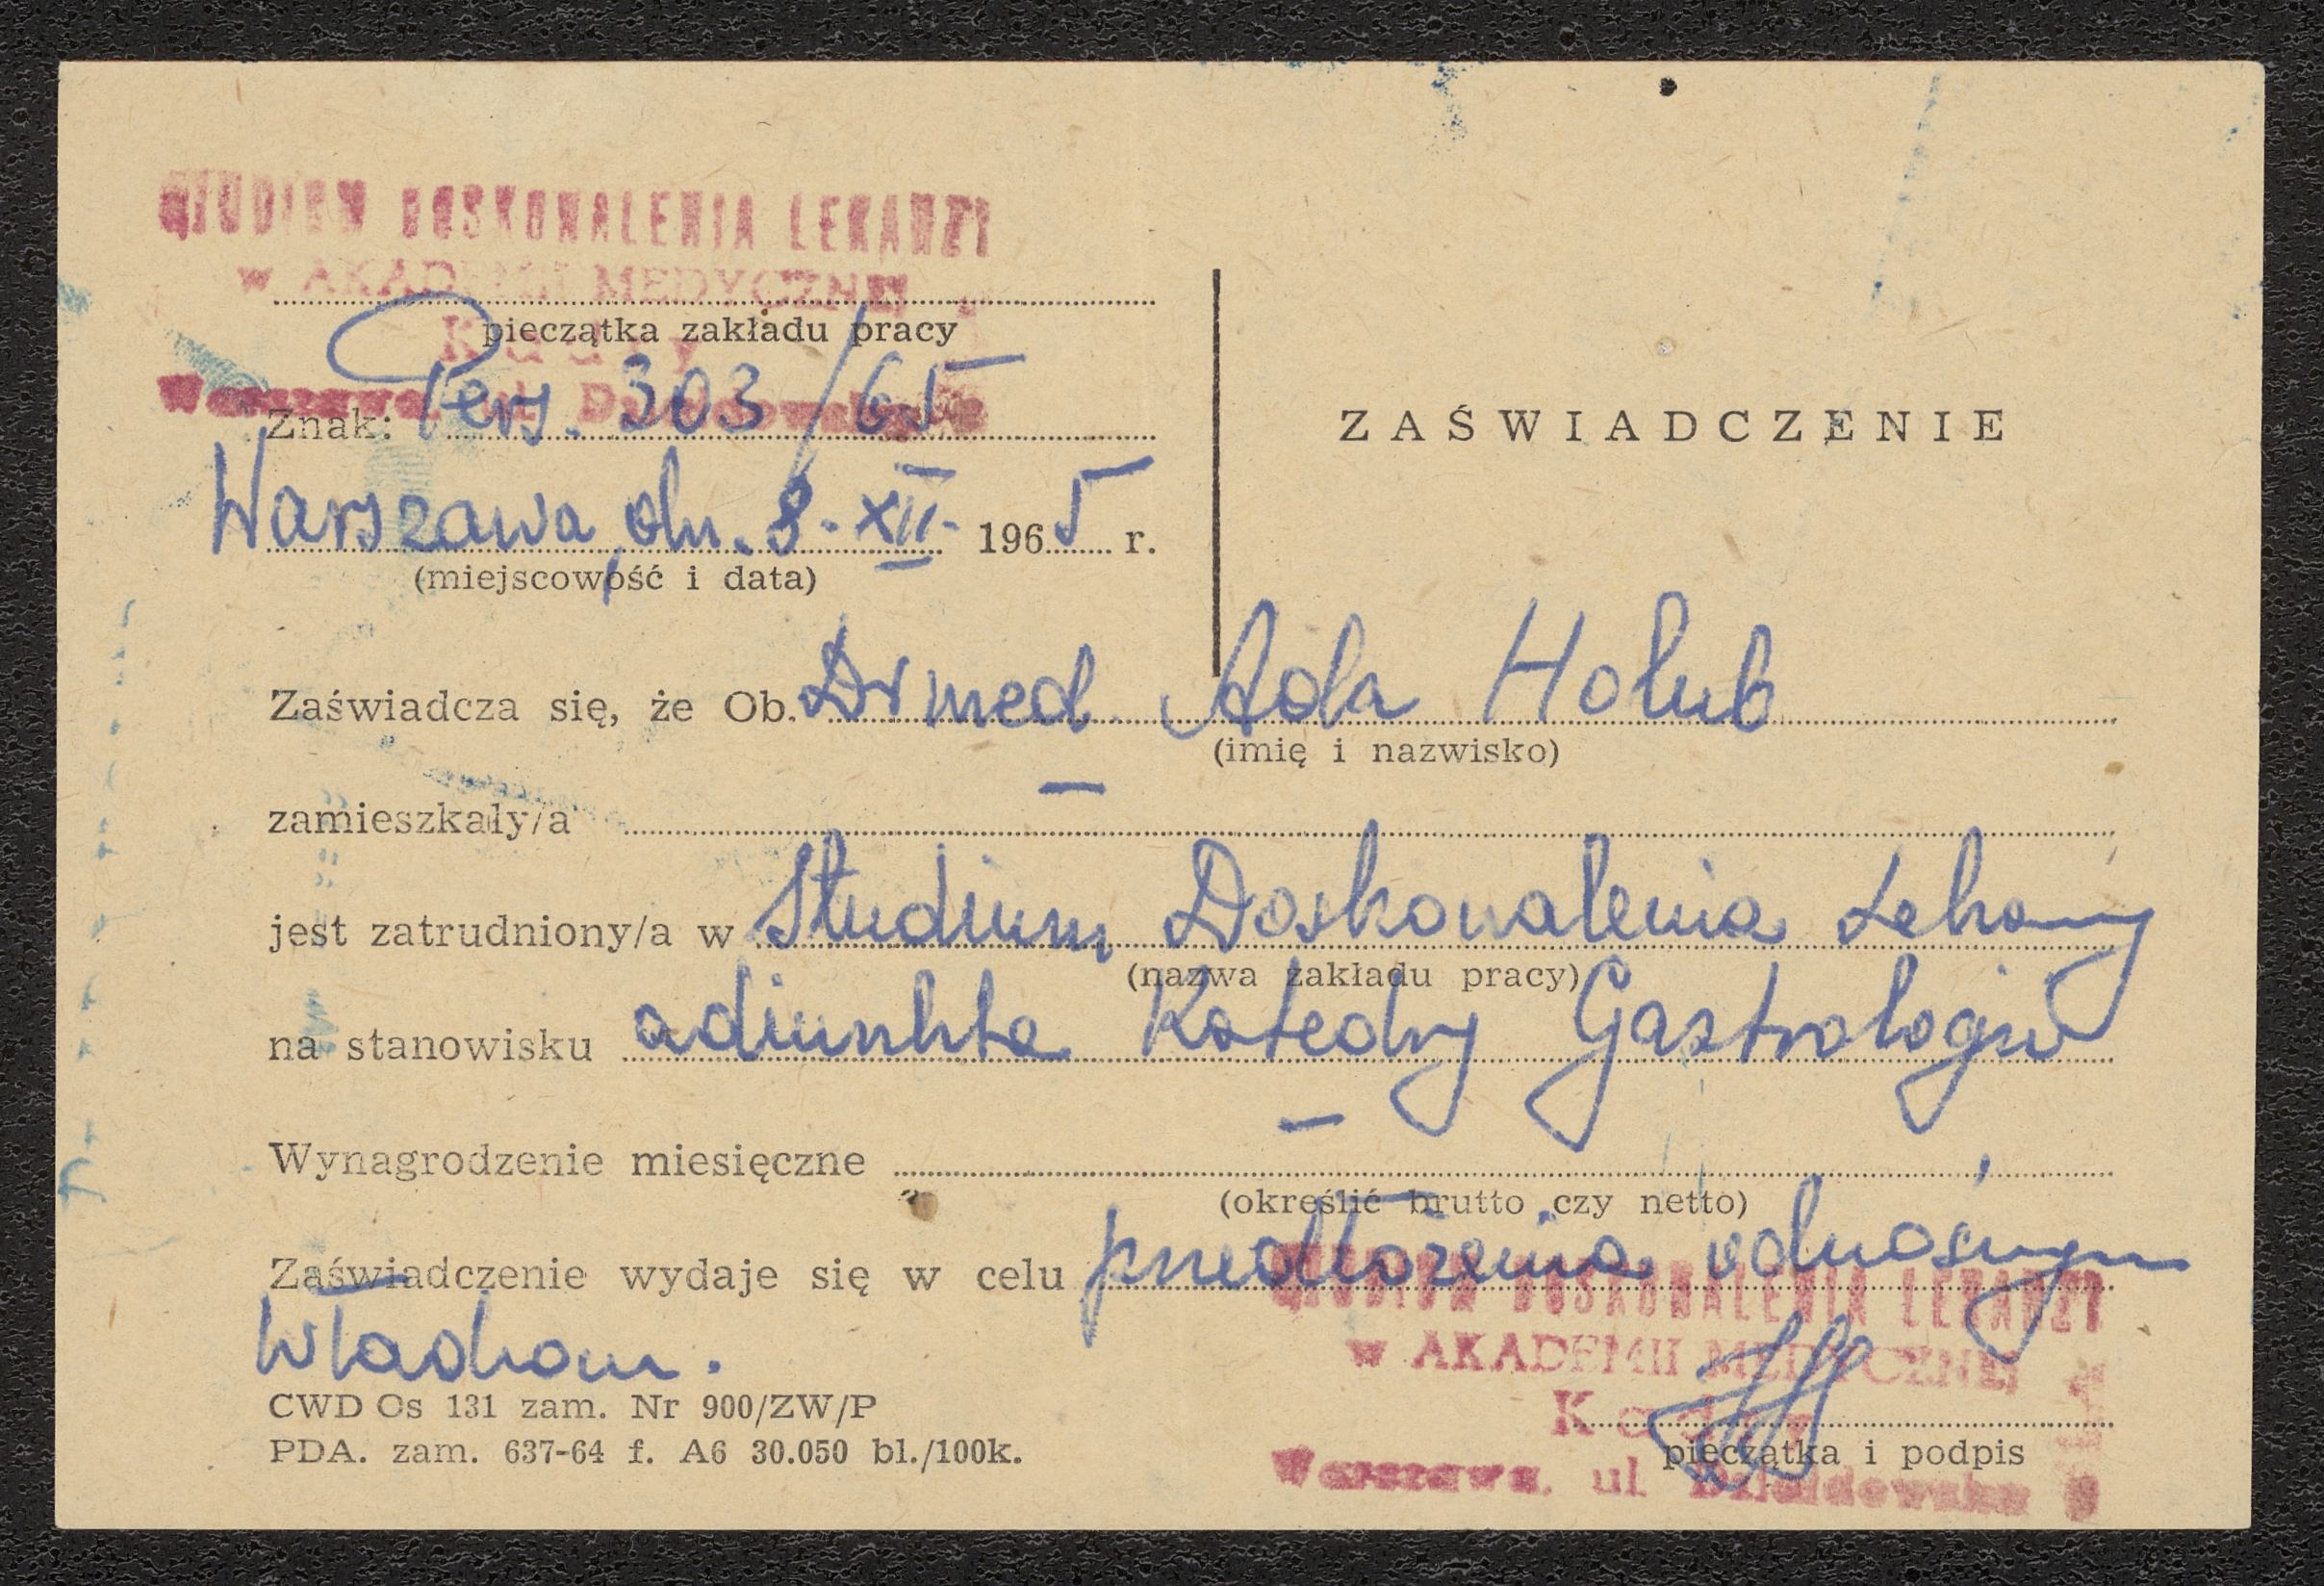 STUDIUM DOSKONALENIA LEKARZY
w AKADEMII MEDYCZNEJ
Kadry
pieczątka zakładu pracy
Warszawa
Znak: Pers. 303/65
Warszawa, dn. 8-XII- 1965 r.
(miejscowość i data)
ZAŚWIADCZENIE
Zaświadcza się, że Ob. Dr med Ada Holub
(imię i nazwisko)
zamieszkały/a —
jest zatrudniony/a w Studium Doskonalenia Lekarzy
(nazwa zakładu pracy)
na stanowisku adiunkta Katedry Gastrologii
Wynagrodzenie miesięczne —
(określić brutto czy netto)
Zaświadczenie wydaje się w celu przedłożenia odnośnym
władzom.
STUDIUM DOSKONALENIA LEKARZY
w AKADEMII MEDYCZNEJ
Kadry
pieczątka i podpis
Warszawa, ul
CWD Os 131 zam. Nr 900/ZW/P
PDA. zam. 637-64 f. A6 30.050 bl./100k.